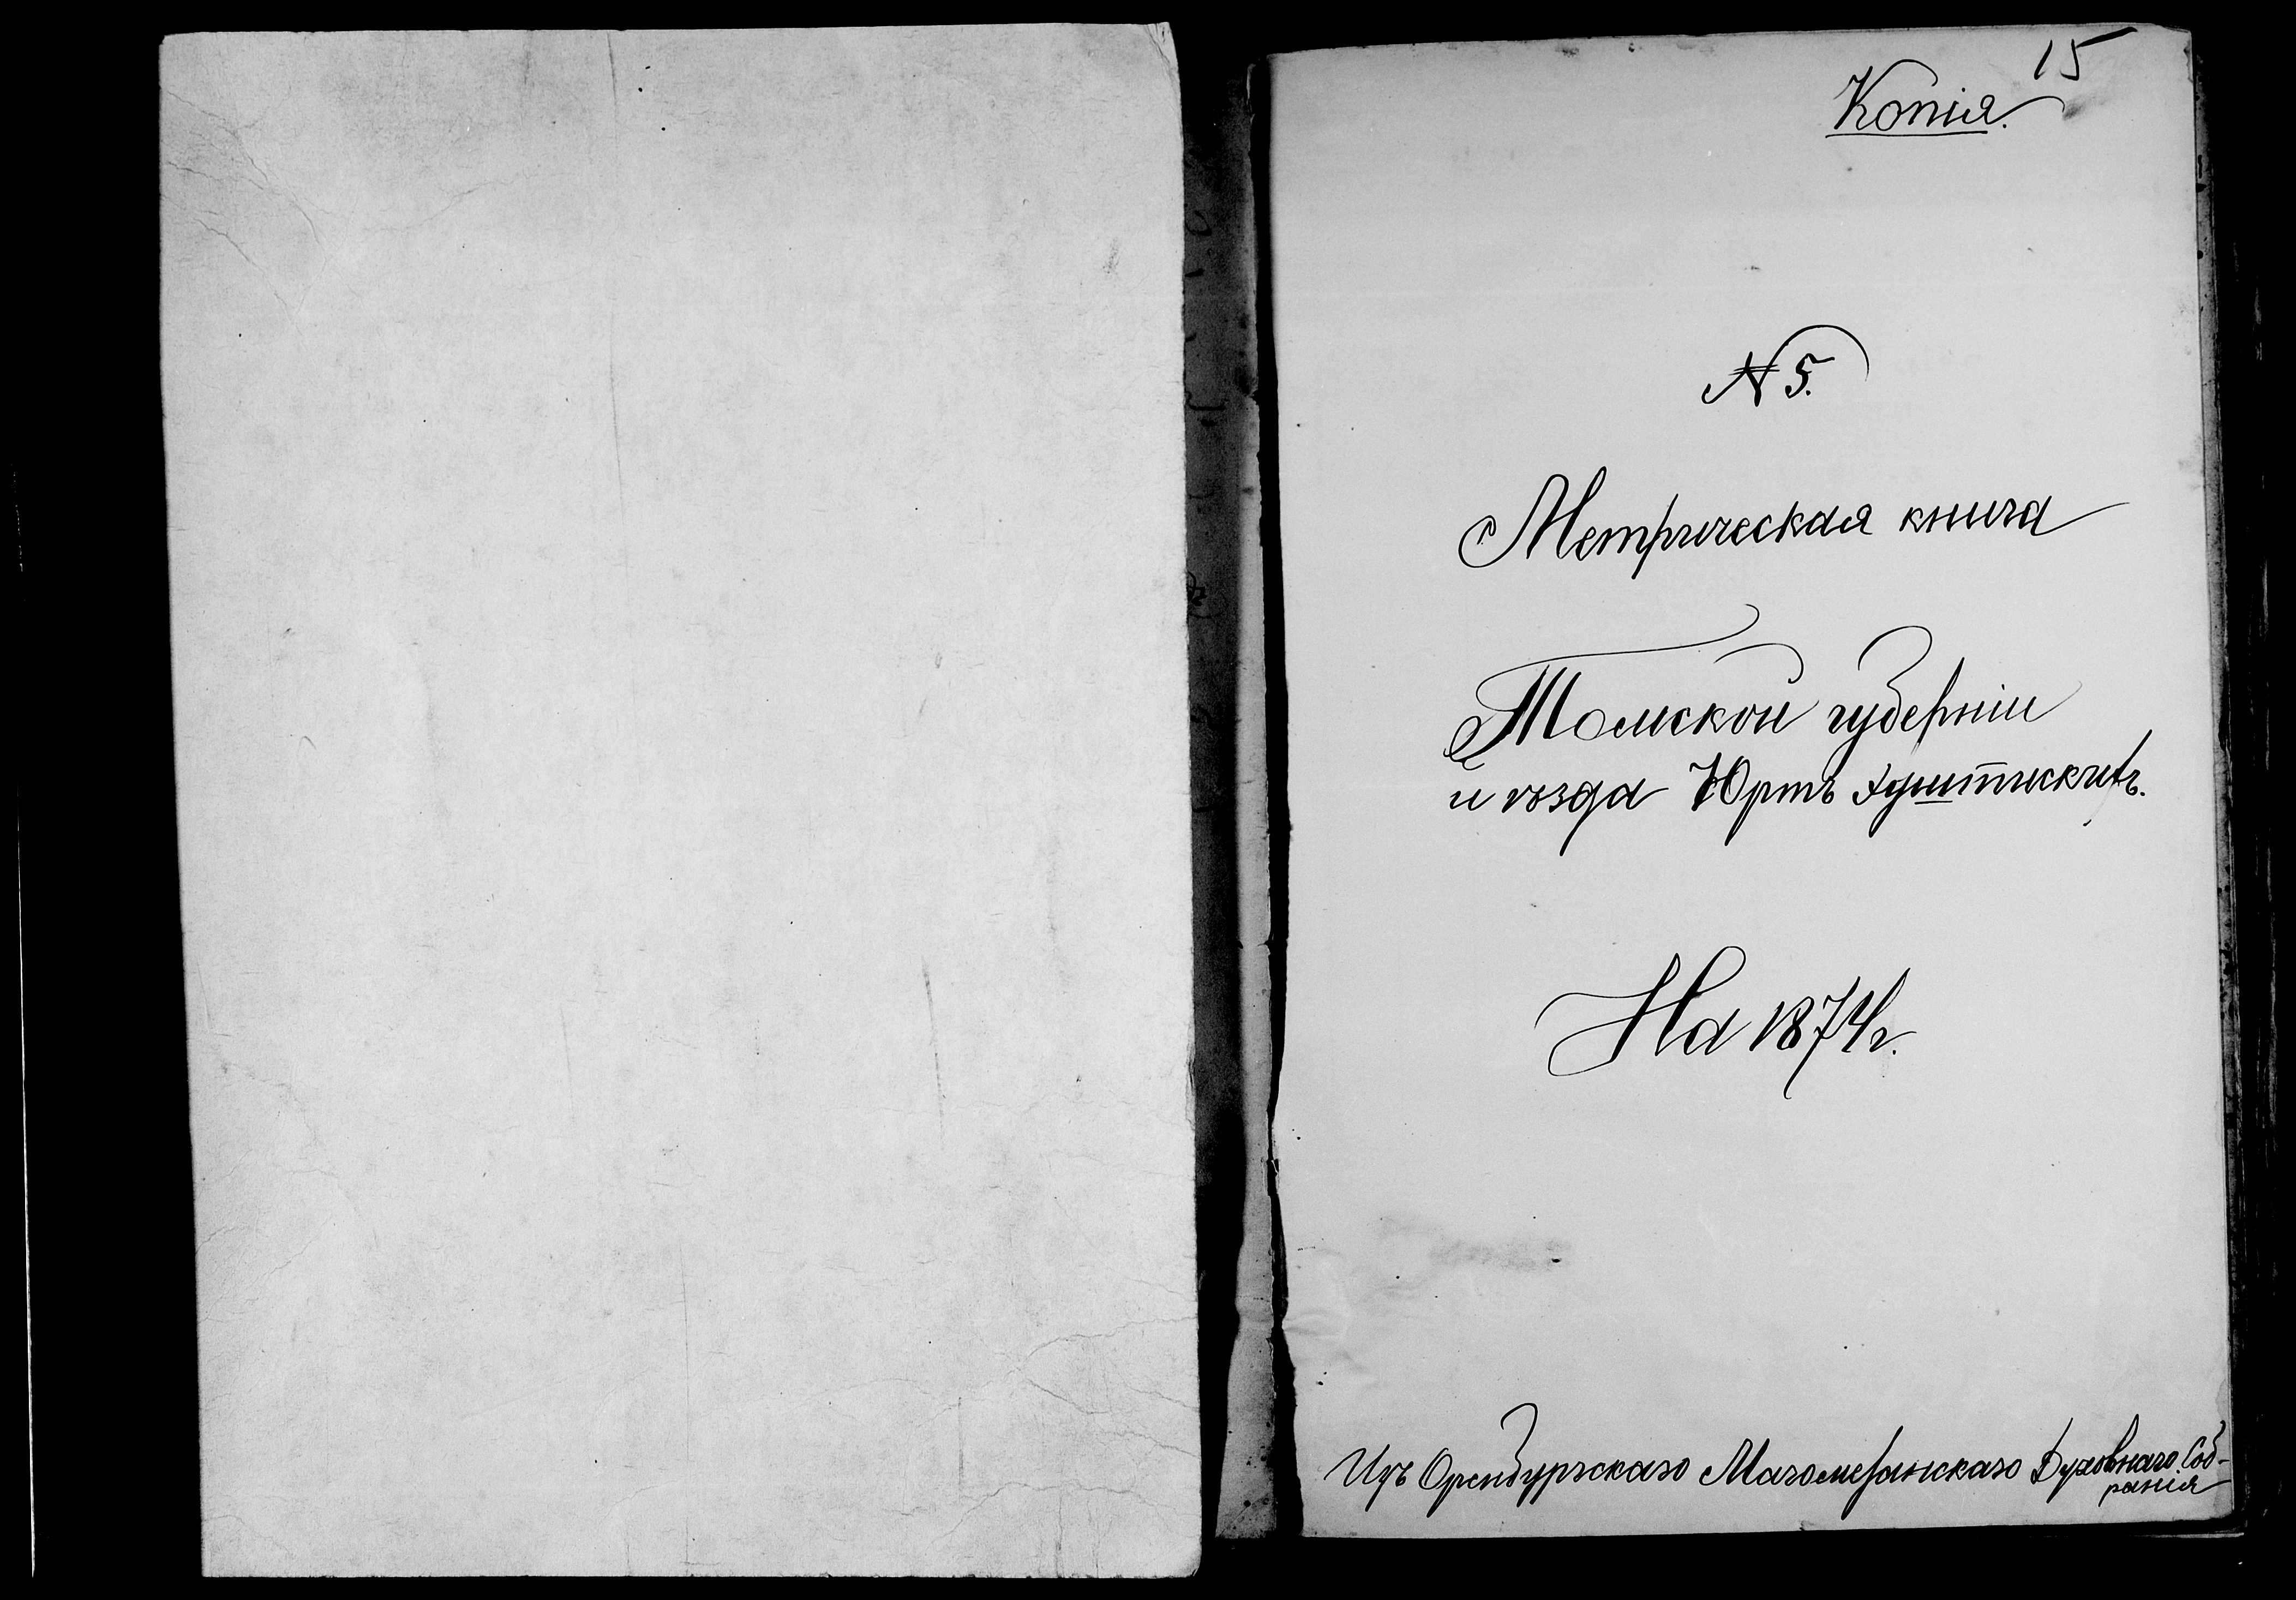 15
Копія.
№ 5.
Метрическая книга
Томской губерніи
и уѣзда Юртъ
На 1874 г.
Изъ Оренбургскаго Магометанскаго Духовнаго Соб-
ранія